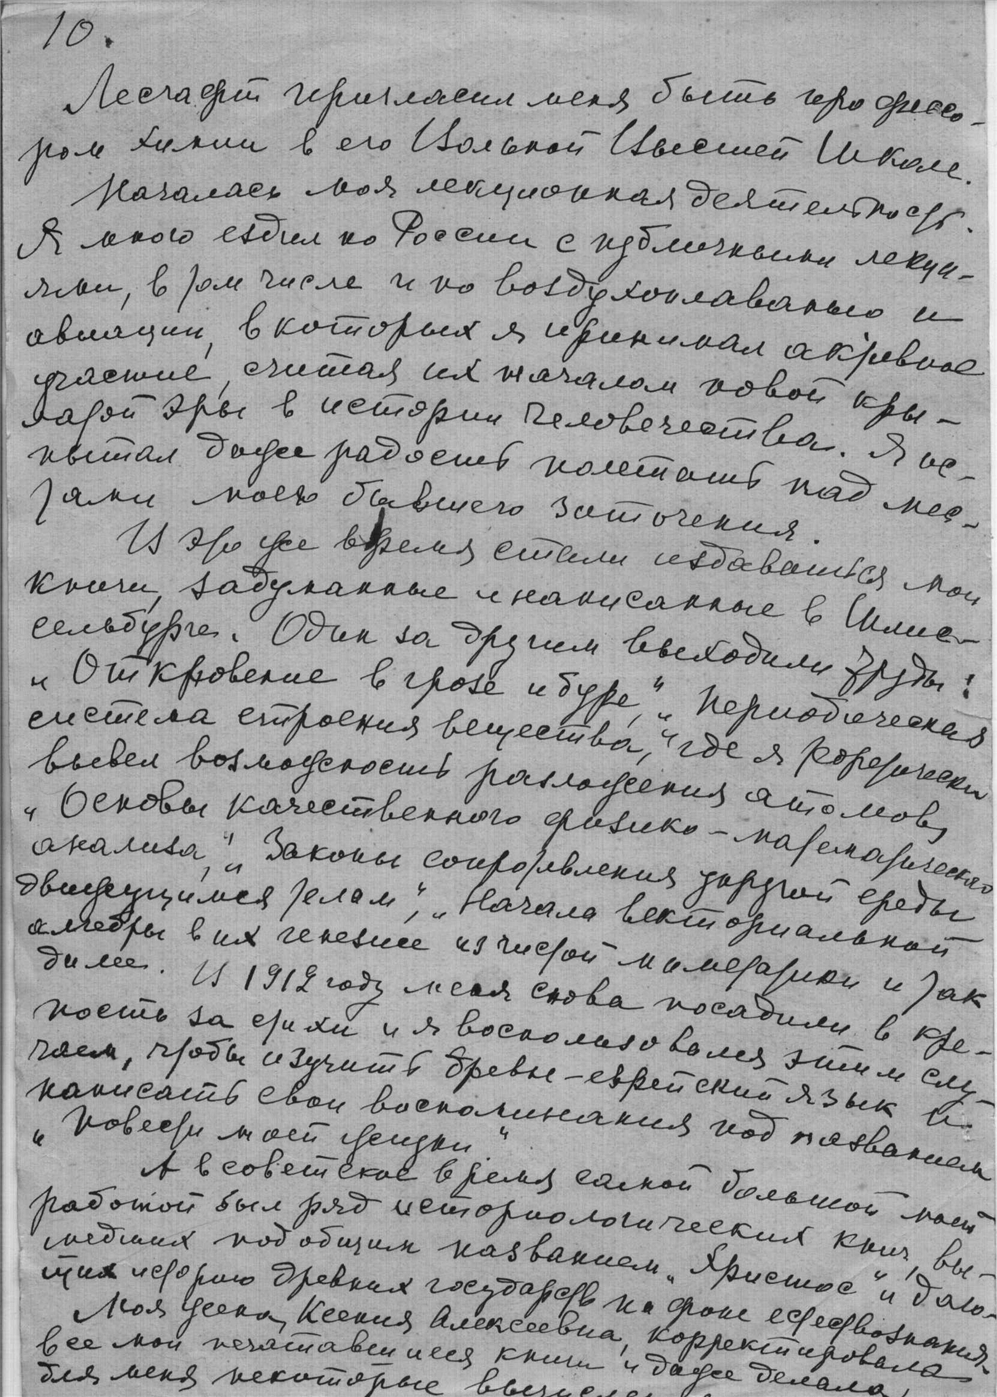 10.
Лесгафт пригласил меня быть профессо-
ром химии в его Вольной Высшей Школе.
Началась моя лекционная деятельность.
Я много ездил по России с публичными лекци-
ями, в том числе и по воздухоплаванью и
авиации, в которых я принимал активное
участие, считая их началом новой кры-
латой эры в истории человечества. Я ис-
пытал даже радость полетать над мес-
тами моего бывшего заточения.
В это же время стали издаваться мои
книги, задуманные и написанные в Шлис-
сельбурге. Один за другим выходили труды:
„Откровение в грозе и буре,“ „Периодическая
система строения вещества,“ где я теоретически
вывел возможность разложения атомов,
„Основы качественного физико-математического
анализа,“ „Законы сопротивления упругой среды
движущимся телам“, „Начала векториальной
алгебры в их генезисе из чистой математики и так
далее. В 1912 году меня снова посадили в кре-
пость за стихи и я воспользовался этим слу-
чаем, чтобы изучить древне-еврейский язык и
написать свои воспоминания под названием
„Повести моей жизни“
А в советское время самой большой моей
работой был ряд историологических книг, вы-
шедших под общим названием „Христос“ и даю-
щих историю древних государств на фоне естествознания.
Моя жена, Ксения Алексеевна, корректировала
все мои печатавшиеся книги и даже делала
для меня некоторые